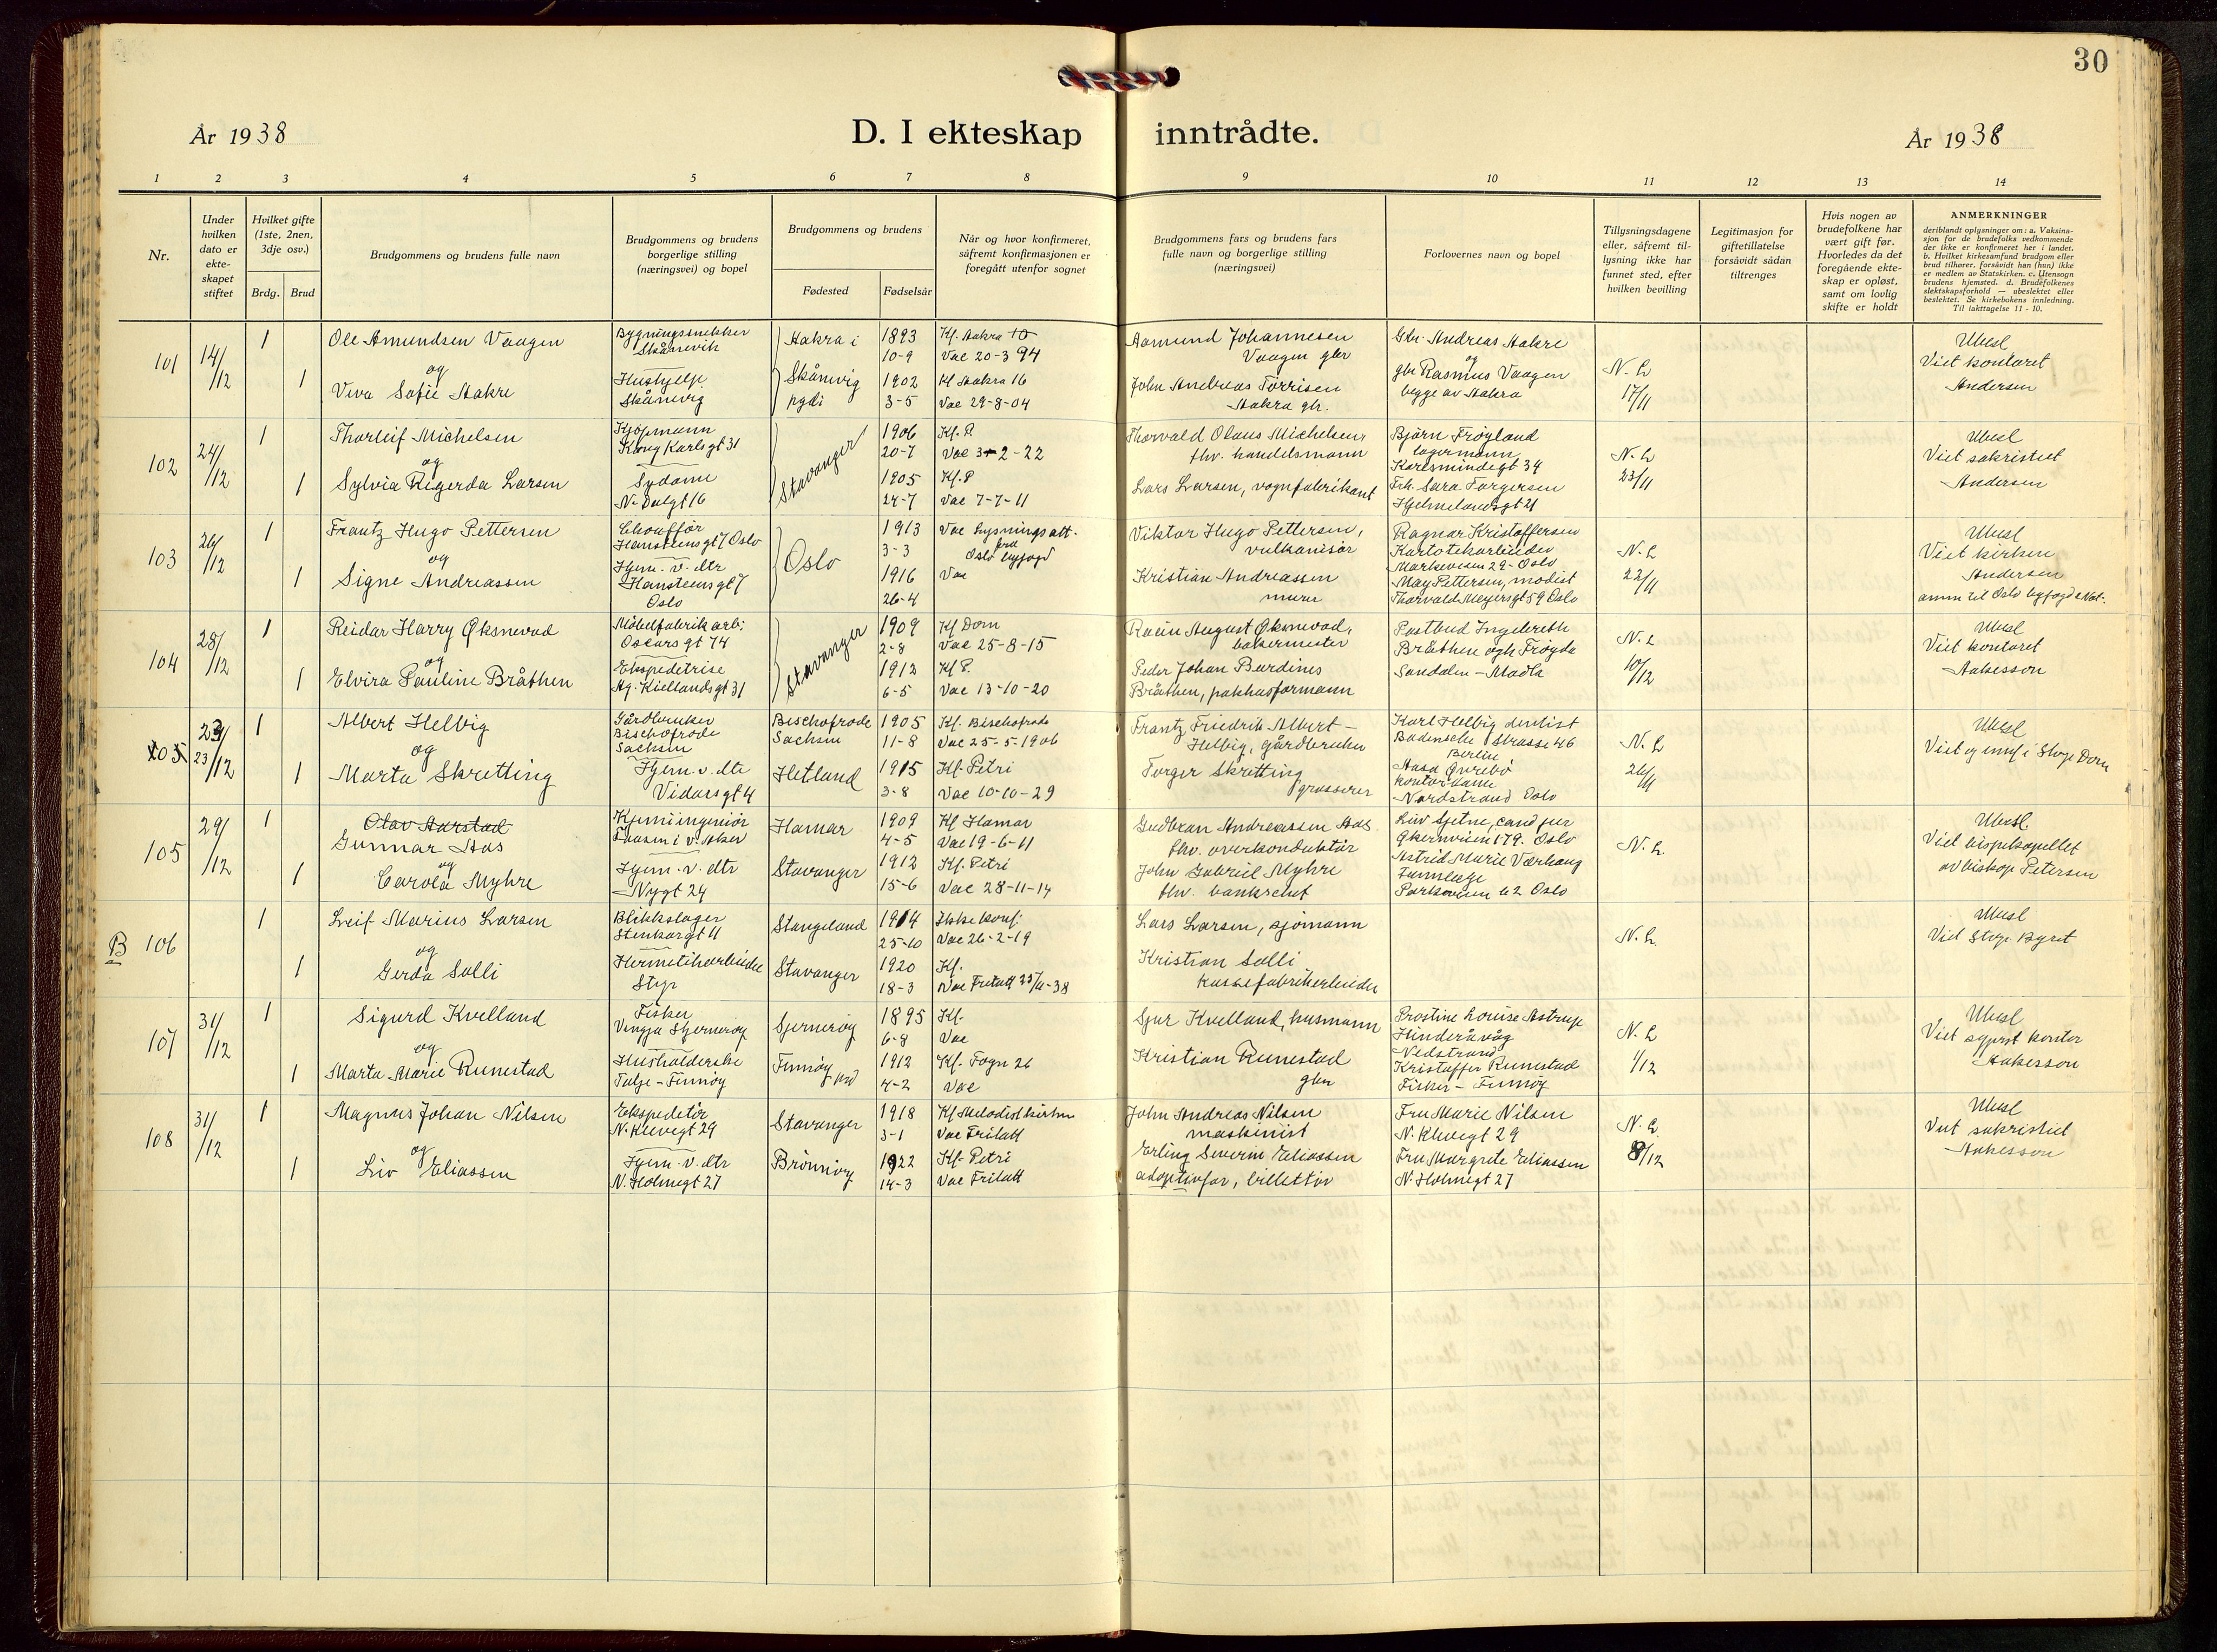 30
År 1938
D. I ekteskap inntrådte.
År 1938
1 2 3 4 5 6 7 8 9 10 11 12 13 14
Nr.
Under hvilken dato er ekte-skapet stiftet
Hvilket gifte (1ste, 2nen, 3dje osv.)
Brdg. Brud
Brudgommens og brudens fulle navn
Brudgommens og brudens borgerlige stilling (næringsvei) og bopel
Brudgommens og brudens
Fødested Fødselsår
Når og hvor konfirmeret, såfremt konfirmasjonen er foregått utenfor sognet
Brudgommens fars og brudens fars fulle navn og borgerlige stilling (næringsvei)
Forlovernes navn og bopel
Tillysningsdagene eller, såfremt til-lysning ikke har funnet sted, efter hvilken bevilling
Legitimasjon for giftetillatelse forsåvidt sådan tiltrenges
Hvis nogen av brudefolkene har vært gift før. Hvorledes da det foregående ekte-skap er opløst, samt om lovlig skifte er holdt
ANMERKNINGER
deriblandt oplysninger om: a. Vaksina-sjon for de brudefolks vedkommende der ikke er konfirmeret her i landet. b. Hvilket kirkesamfund brudgom eller brud tilhører, forsåvidt han (hun) ikke er medlem av Statskirken. c. Utensogn brudens hjemsted. d. Brudefolkenes slektskapsforhold — ubeslektet eller beslektet. Se kirkebokens innledning. Til iakttagelse 11 - 10.
101 14/12 1 Ole Amundsen Vaagen Bygningssnekker Skånevik Aakra i 1893 10-9 Kf. Aakra 10 Vac 20-3 94 Aamund Johannesen Vaagen gbr Gbr. Andreas Aakre og Ubesl
og
1 Viva Sofie Aakre Hushjelp Skånevig Skånevig pgd: 1902 3-5 Kf Aakra 16 Vac 29-8-04 John Andreas Tørrisen Aakra gbr. gbr Rasmus Vaagen begge av Aakra N. L 17/11 Viet kontoret Andersen
102 24/12 1 Thorleif Michelsen Kjøpmann Kong Karlsgt 31 Stavanger 1906 20-7 Kf. P. Vac 3-2-22 Thorvald Olaus Michelsen, fhv. handelsmann Bjørn Frøyland lagermann Karlsmindegt 34 Ubesl
og
1 Sylvia Regerda Larsen Sydame N. Dalgt 16 1905 24-7 Kf. P Vac 7-7-11 Lars Larsen, vognfabrikant Frk. Sara Torgersen Hjelmelandsgt 21 N. L 23/11 Viet sakristiet Andersen
103 26/12 1 Frantz Hugo Pettersen Chauffør Hansteensgt 7 Oslo Oslo 1913 3-3 Vac lysningsatt. fra Oslo byfogd Viktor Hugo Pettersen, vulkanisør Ragnar Kristoffersen Kartotekarbeider Markveien 29 - Oslo Ubesl
og
1 Signe Andreassen Hjem. v. dtr Hansteensgt 7 Oslo 1916 26-4 Vac Kristian Andreassen murer May Pettersen, modist Thorvald Meyersgt 59 Oslo N. L 22/11 Viet kirken Andersen
104 28/12 1 Reidar Harry Øksnevad Møbelfabrikarb: Oscarsgt 74 Stavanger 1909 2-8 Kf Dom Vac 25-8-15 August Øksnevad, bakermester Postbud Ingebreth Bråthen ogh Frøyda Ubesl
og
1 Elvira Pauline Bråthen Ekspeditrise Ag. Kiellandsgt 31 1912 6-5 Kf P. Vac 13-10-20 Peder Johan Berdines Bråthen, pakhusformann Sandalen - Madla N. L 10/12 Viet kontoret Aakesson
105 23/12 1 Albert Helbig Gårdbruker Bischofrode Sachsen Bischofrode Sachsen 1905 11-8 Kf. Bischofrode Vac 25-5-1906 Frantz Friedrik Albert Helbig, gårdbruker Karl Helbig dentist Badensche Strasse 46 Berlin Ubesl
og
1 Marta Skretting Hjem. v. dtr Vidarsgt 4 Hetland 1915 3-8 Kf. Petri Vac 10-10-29 Torger Skretting grosserer Aasa Øvrebø kontordame Nordstrand Oslo N. L 26/11 Viet og innf i Stvgr Dom
105 29/12 1 Olav Aarstad Gunnar Aas Kjemiingeniør i V. Aker Hamar 1909 4-5 Kf Hamar Vac 19-6-11 Gudbran Andreassen Aas fhv. overkonduktør Liv Sjetne, cand jur Økernveien 179. Oslo Ubesl.
og
1 Carola Myhre Hjem. v. dtr Nygt 24 Stavanger 1912 15-6 Kf. Petri Vac 28-11-14 John Gabriel Myhre fhv. bankrevt Astrid Marie Værhaug Parkveien 62 Oslo N. L. Viet bispekapellet av biskop Petersen
B 106 1 Leif Marius Larsen Blikkslager Stenkargt 11 Stangeland 1914 25-10 Ikke konf. Vac 26-2-19 Lars Larsen, sjømann N. L. Ubesl
og
1 Gerda Solli Hermetikarbeider Stgr Stavanger 1920 18-3 Kf. Vac Fritatt 25/11-38 Kristian Solli kassefabrikarbeider Viet Stvgr. Byrett
107 31/12 1 Sigurd Kvelland Fisker Vingja Sjernerøy Sjernerøy 1895 6-8 Kf. Vac Sjur Kvelland, husmann Prostine Louise Astrup Hinderåvåg Nedstrand Ubesl
og
1 Marta Marie Runestad Husholderske Talje - Finnøy Finnøy 1912 4-2 Kf. Fogn 26 Vac Kristian Runestad gbr Kristoffer Runestad Fisker - Finnøy N. L 1/12 Viet sgprst kontor Aakesson
108 31/12 1 Magnus Johan Nilsen Ekspeditør N. Klevegt 29 Stavanger 1918 3-1 Kf Metodistkirken Vac Fritatt John Andreas Nilsen maskinist Fru Marie Nilsen N. Klevegt 29 Ubesl
og
1 Liv Eliassen Hjem. v. dtr N. Holmegt 27 Brønnøy 1922 14-3 Kf. Petri Vac Fritatt Erling Severin Eliassen adoptivfar, billettør Fru Margrete Eliassen N. Holmegt 27 N. L. 8/12 Viet sakristiet Aakesson